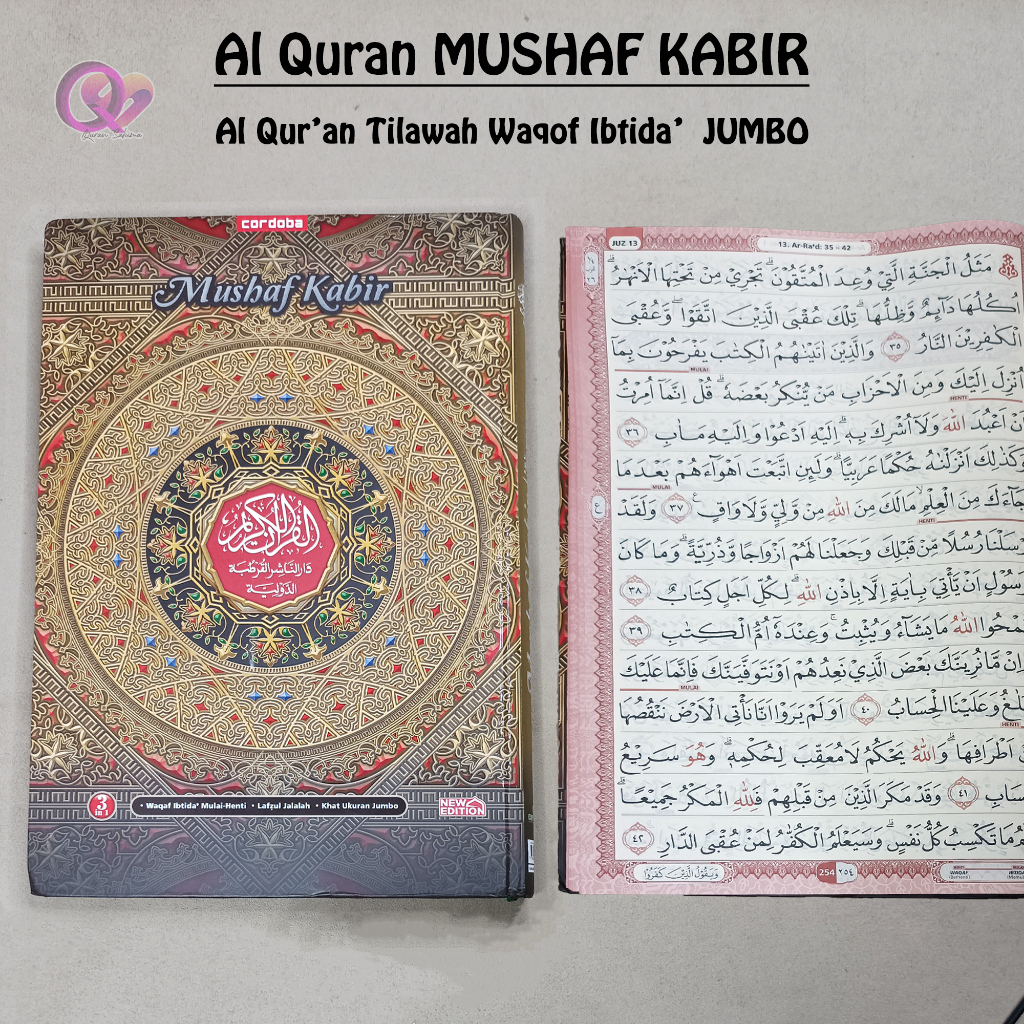 Al Quran MUSHAF KABIR
Al Qur'an Tilawah Waqof Ibtida' JUMBO
Quran Salima
cordoba
Mushaf Kabir
القرآن الكريم
دَارُ النَّاشِرِ الْقُرْطُبَة
الدَّوْلِيَة
3 in 1
• Waqaf Ibtida' Mulai-Henti • Lafzul Jalalah • Khat Ukuran Jumbo
NEW EDITION
JUZ 13
13. Ar-Ra'd: 35 - 42
مَثَلُ الْجَنَّةِ الَّتِيْ وُعِدَ الْمُتَّقُوْنَۗ تَجْرِيْ مِنْ تَحْتِهَا الْاَنْهٰرُۗ
اُكُلُهَا دَاۤىِٕمٌ وَّظِلُّهَاۗ تِلْكَ عُقْبَى الَّذِيْنَ اتَّقَوْا ۖوَّعُقْبَى
الْكٰفِرِيْنَ النَّارُ ٣٥ وَالَّذِيْنَ اٰتَيْنٰهُمُ الْكِتٰبَ يَفْرَحُوْنَ بِمَآ
MULAI
اُنْزِلَ اِلَيْكَ وَمِنَ الْاَحْزَابِ مَنْ يُّنْكِرُ بَعْضَهٗ ۗ قُلْ اِنَّمَآ اُمِرْتُ
HENTI
اَنْ اَعْبُدَ اللّٰهَ وَلَآ اُشْرِكَ بِهٖ ۗاِلَيْهِ اَدْعُوْا وَاِلَيْهِ مَاٰبِ ٣٦
وَكَذٰلِكَ اَنْزَلْنٰهُ حُكْمًا عَرَبِيًّاۗ وَلَىِٕنِ اتَّبَعْتَ اَهْوَاۤءَهُمْ بَعْدَمَا
MULAI
جَاۤءَكَ مِنَ الْعِلْمِۙ مَا لَكَ مِنَ اللّٰهِ مِنْ وَّلِيٍّ وَّلَا وَاقٍ ࣖ ٣٧ وَلَقَدْ
HENTI
اَرْسَلْنَا رُسُلًا مِّنْ قَبْلِكَ وَجَعَلْنَا لَهُمْ اَزْوَاجًا وَّذُرِّيَّةً ۗوَمَا كَانَ
رَسُوْلٍ اَنْ يَّأْتِيَ بِاٰيَةٍ اِلَّا بِاِذْنِ اللّٰهِ ۗلِكُلِّ اَجَلٍ كِتَابٌ ٣٨
يَمْحُوا اللّٰهُ مَا يَشَاۤءُ وَيُثْبِتُ ۚوَعِنْدَهٗٓ اُمُّ الْكِتٰبِ ٣٩
وَاِنْ مَّا نُرِيَنَّكَ بَعْضَ الَّذِيْ نَعِدُهُمْ اَوْ نَتَوَفَّيَنَّكَ فَاِنَّمَا عَلَيْكَ
MULAI
الْبَلٰغُ وَعَلَيْنَا الْحِسَابُ ٤٠ اَوَلَمْ يَرَوْا اَنَّا نَأْتِى الْاَرْضَ نَنْقُصُهَا
اَطْرَافِهَاۗ وَاللّٰهُ يَحْكُمُ لَا مُعَقِّبَ لِحُكْمِهٖۗ وَهُوَ سَرِيْعُ
الْحِسَابِ ٤١ وَقَدْ مَكَرَ الَّذِيْنَ مِنْ قَبْلِهِمْ فَلِلّٰهِ الْمَكْرُ جَمِيْعًاۗ
يَعْلَمُ مَا تَكْسِبُ كُلُّ نَفْسٍۗ وَسَيَعْلَمُ الْكُفّٰرُ لِمَنْ عُقْبَى الدَّارِ ٤٢
وَيَقُوْلُ الَّذِيْنَ كَفَرُوْا
254 ٢٥٤
WAQAF